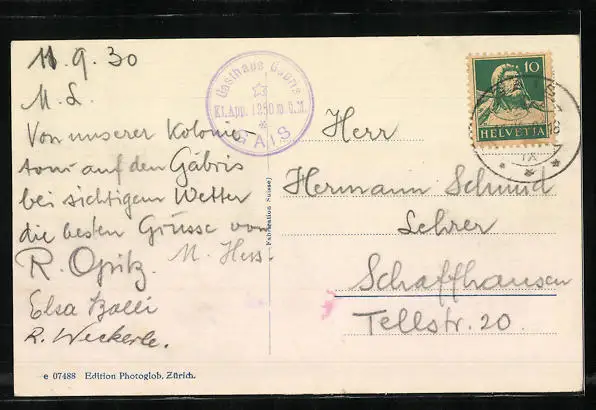 11.9.30
M. L.
Von unserer Kolonie-
tour auf den Gäbris
bei sichtigem Wetter
die besten Grüsse von
R. Opitz. M. Hess.
Elsa Bolli
R. Weckerle.
e 07488 Edition Photoglob, Zürich.
Gasthaus Gäbris
Kt. App. 1250 m ü. M.
GAIS
(Fabrication Suisse)
10
HELVETIA
IX
Herr
Hermann Schmid
Lehrer
Schaffhausen
Tellstr. 20.